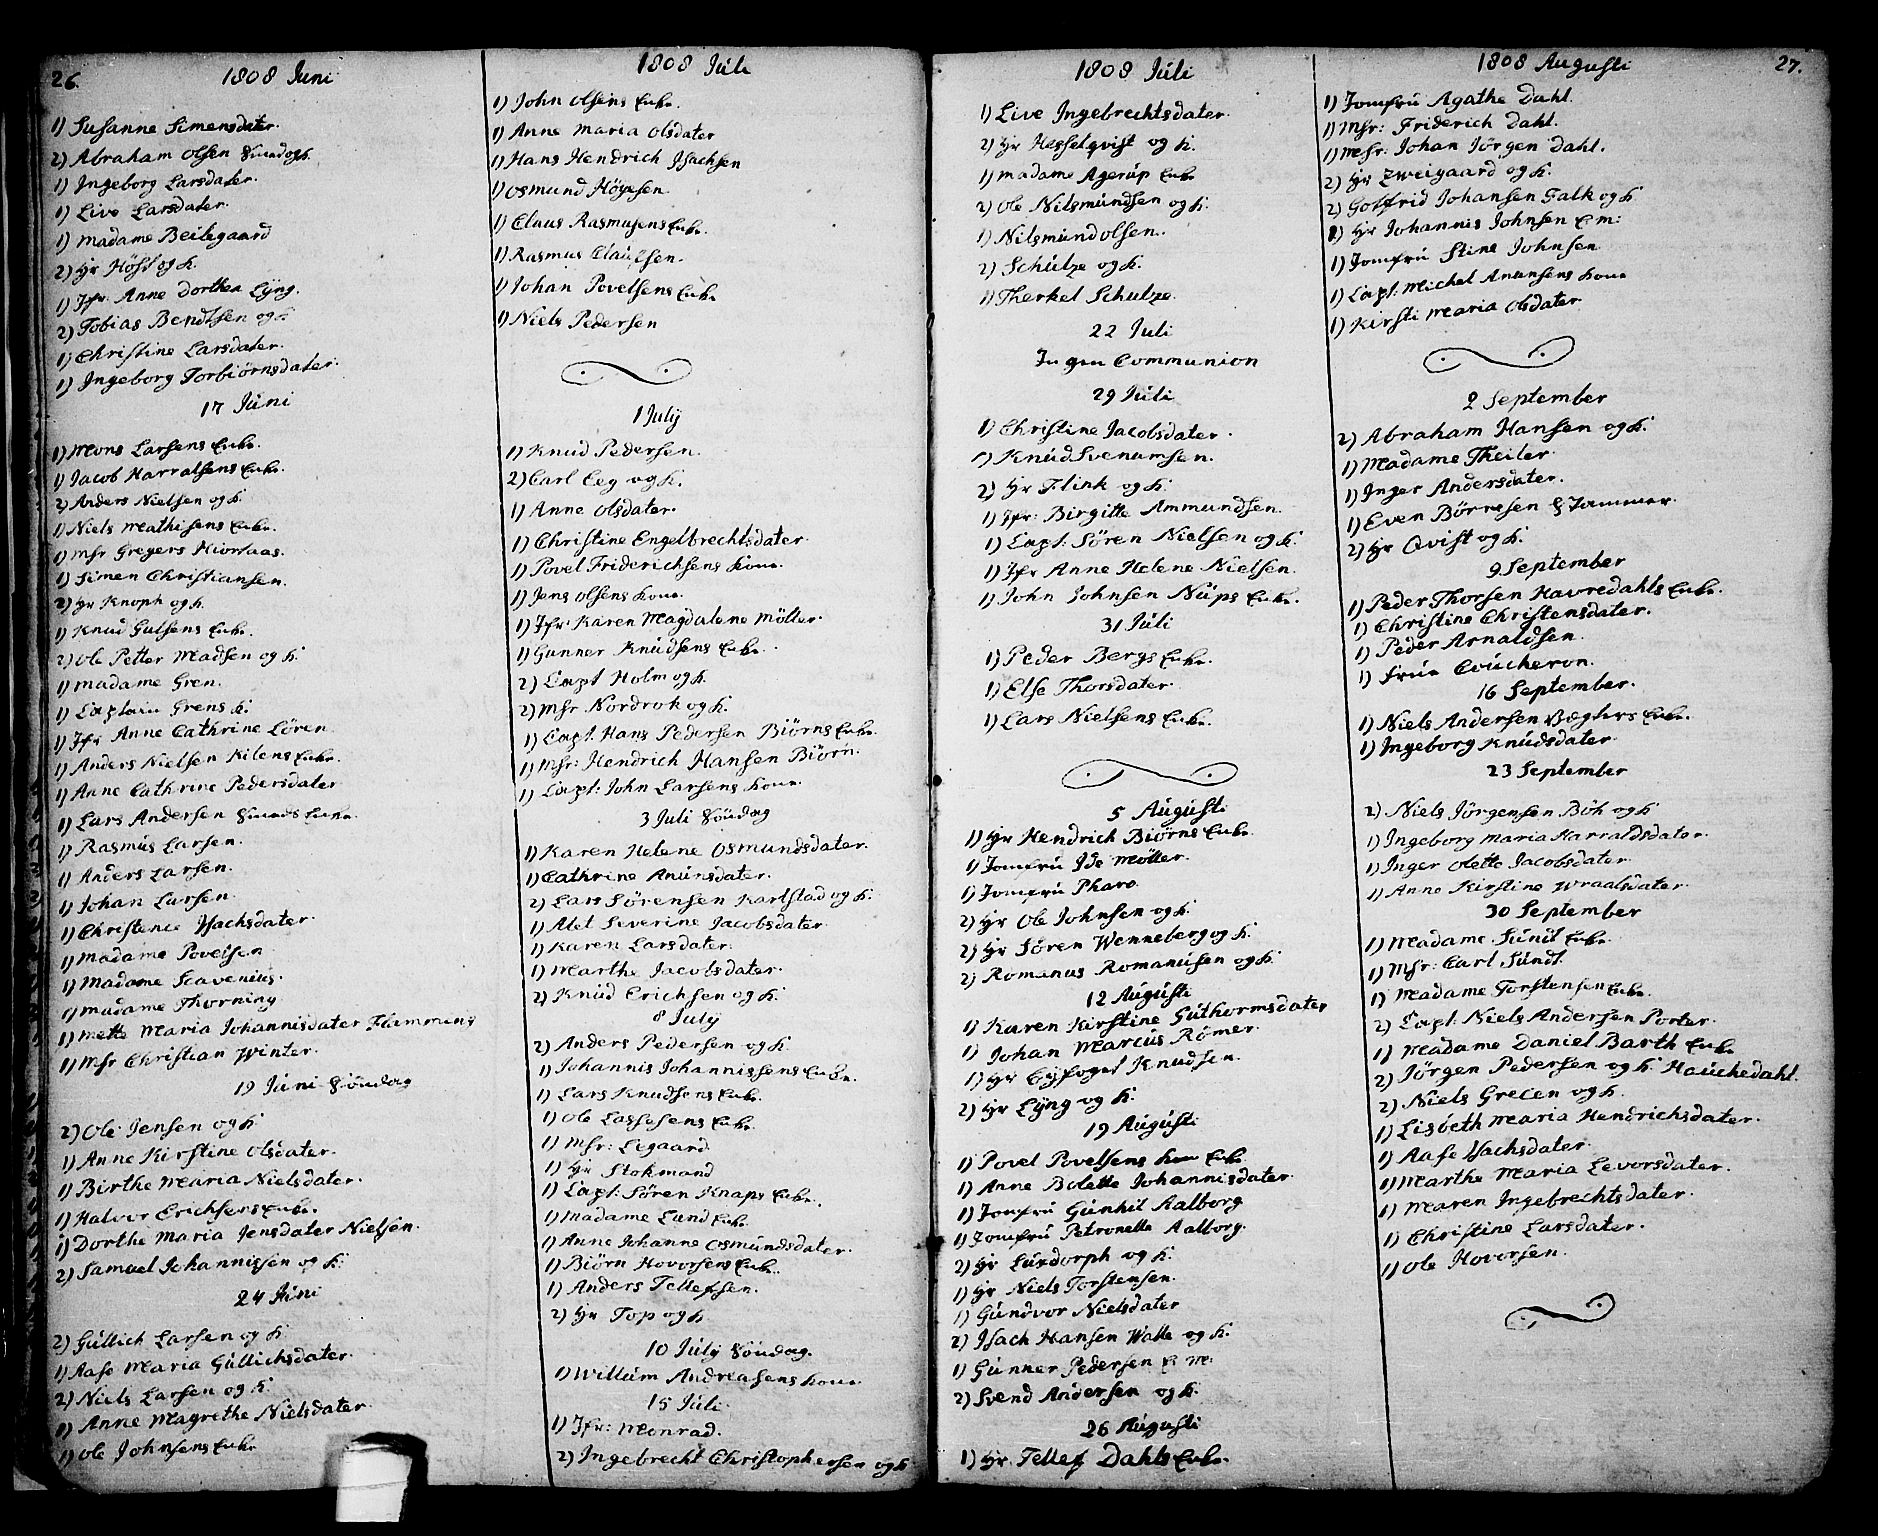 26.
1808 Juni
1) Susanne Simensdater.
2) Abraham Olsen Smed og K.
1) Ingeborg Larsdater.
1) Live Larsdater.
1) Madame Beilegaard
2) Hr Höst og K.
1) Jfr: Anne Dorthea Lÿng.
2) Tobias Bendtsen og K
1) Christine Larsdater.
1) Ingeborg Torbiörnsdater.
17 Juni
1) Mons Larsens Enke.
1) Jacob Harralsens Enke.
2) Anders Nielsen og K.
1) Niels Mathisens Enke.
1) Msr Gregers Hiortaas.
1) Simen Christiansen.
2) Hr Knoph og K.
1) Knud Gulsens Enke.
2) Ole Petter Madsen og K.
1) Madame Gren.
1) Captain Grens K.
1) Jfr Anne Cathrine Lören
1) Anders Nielsen Kilens Enke.
1) Anne Cathrine Pedersdater
1) Lars Andersen Smeds Enke.
1) Rasmus Larsen.
1) Anders Larsen.
1) Johan Larsen.
1) Christence Isachsdater.
1) Madame Povelsen
1) Madame Scavenius.
1) Madame Thorning
1) Mette Maria Johannisdater Flammens
1) Msr Christian Winter.
19 Juni Söndag
2) Ole Jensen og K
1) Anne Kirstine Olsdater.
1) Birthe Maria Nielsdater.
1) Halvor Erichsens Enke.
1) Dorthe Maria Jensdater Nielsen.
2) Samuel Johannissen og K.
24 Juni
2) Gullich Larsen og K
1) Aase Maria Gullichsdater.
2) Niels Larsen og K.
1) Anne Magrethe Nielsdater.
1) Ole Johnsens Enke
1808 Juli
1) John Olsens Enke.
1) Anne Maria Olsdater
1) Hans Hendrich Isachsen
1) Osmund Höyesen
1) Claus Rasmusens Enke.
1) Rasmus Clausen.
1) Johan Povelsens Enke
1) Niels Pedersen
1 Julÿ
1) Knud Pedersen.
2) Carl Eeg og K.
1) Anne Olsdater.
1) Christine Engelbrechtsdater.
1) Povel Friderichsens Kone.
1) Jens Olsens Kone.
1) Jfr: Karen Magdalene Möller.
1) Gunner Knudsens Enke.
2) Capt Holm og K.
2) Msr Nordrok og K.
1) Capt: Hans Pedersen Biörns Enke.
1) Msr: Hendrich Hansen Biörn.
1) Capt: John Larsens Kone
3 Juli Söndag
1) Karen Helene Osmundsdater.
1) Cathrine Anunsdater.
2) Lars Sörensen Karlstad og K.
1) Alet Severine Jacobsdater
1) Karen Larsdater.
1) Marthe Jacobsdater.
2) Knud Erichsen og K.
8 Julÿ
2) Anders Pedersen og K.
1) Johannis Johannissens Enke.
1) Lars Knudsens Enke.
1) Ole Lassesens Enke.
1) Msr: Legaard
1) Hr Stokmand
1) Capt: Sören Knaps Enke.
1) Madame Lund Enke
1) Anne Johanne Osmundsdater.
1) Biörn Hovorsens Enke.
1) Anders Tellefsen.
2) Hr Top og K
10 Julÿ Söndag.
1) Willum Andreasens Kone
15 Juli.
1) Jfr: Monrad.
2) Ingebrecht Christophersen og K
1808 Juli
1) Live Ingebrechtsdater.
2) Hr Hesselqvist og K.
1) Madame Agerup Enke
2) Ole Nilsmundsen og K.
1) Nilsmund Olsen.
2) Schulze og K.
1) Therkel Schulze.
22 Juli
Ingen Communion
29 Juli
1) Christine Jacobsdater.
1) Knud Svenumsen.
2) Hr Flink og K.
1) Jfr: Birgitte Ammundsen.
1) Capt: Sören Nielsen og K.
1) Jfr Anne Helene Nielsen.
1) John Johnsen Nüps Enke.
31 Juli
1) Peder Bergs Enke.
1) Else Thorsdater.
1) Lars Nielsens Enke.
5 Augusti
1) Hr Hendrich Biörns Enke.
1) Jomfru Ide Möller.
1) Jomfru Pharo
2) Hr Ole Johnsen og K.
2) Hr Sören Wenneberg og K.
2) Romanus Romanusen og K.
12 Augusti
1) Karen Kirstine Guthormsdater
1) Johan Marcus Römer.
1) Hr Cÿpogel Knudsen.
2) Hr Lÿng og K.
19 Augusti
1) Povel Povelsens Kone Enke
1) Anne Bolette Johannisdater.
1) Jomfru Gunhil Aalborg
1) Jomfru Petronelle Aalborg.
2) Hr Luxdorph og K.
1) Hr Niels Torstensen.
1) Gundvor Nielsdater
2) Isach Hansen Walle og K.
1) Gunner Pedersen E M:
2) Svend Andersen og K.
26 Augusti
1) Hr. Tellef Dahls Enke.
1808 Augusti
27.
1) Jomfru Agathe Dahl.
1) Msr: Friderich Dahl.
1) Msr: Johan Jörgen Dahl.
2) Hr Zweigaard og K.
2) Gotfrid Johansen Falk og K
1) Hr Johannis Johnsen E M:
1) Jomfru Stine Johnsen
1) Capt: Michel Anunsens Kone
1) Kirsti Maria Olsdater
2 September
2) Abraham Hansen og K.
1) Madame Theiler.
1) Inger Andersdater.
1) Even Börresen
2) Hr Qvist og K.
9 September
1) Peder Thorsen Havredahls Enke.
1) Christine Christensdater.
1) Peder Arnaldsen.
1) Frue Coucheron.
16 September.
1) Niels Andersen Vægters Enke.
1) Ingeborg Knudsdater.
23 September
2) Niels Jörgensen Böh og K
1) Ingeborg Maria Harraldsdater.
1) Inger Olette Jacobsdater
1) Anne Kirstine Wraalsdater.
30 September
1) Madame Sundt Enke.
1) Msr: Carl Sundt.
1) Madame Torstensen Enke.
2) Capt: Niels Andersen Porter.
1) Madame Daniel Barth Enke
2) Jörgen Pedersen og K. Hauchedahl.
2) Niels Grecen og K.
1) Lisbeth Maria Hendrichsdater.
1) Aase Isachsdater.
1) Marthe Maria Levorsdater.
1) Maren Ingebrechtsdater.
1) Christine Larsdater.
1) Ole Hovorsen.